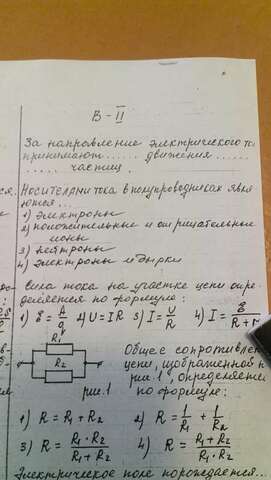 В - II
За направление электрического то
принимают ...... движения ......
...... частиц.
Носителями тока в полупроводниках явля
ются ...
1) электроны
2) положительные и отрицательные
ионы
3) нейтроны
4) электроны и дырки
Сила тока на участке цепи опре-
деляется по формуле:
1) ℰ = A/q 2) U = IR 3) I = U/R 4) I = ℰ/(R+r)
R₁
R₂
рис. 1
Общее сопротивлен
цепи, изображенной н
рис. 1, определяется
по формуле:
1) R = R₁ + R₂ 2) R = 1/R₁ + 1/R₂
3) R = R₁·R₂/(R₁+R₂) 4) R = (R₁+R₂)/(R₁·R₂)
Электрическое поле порождается...